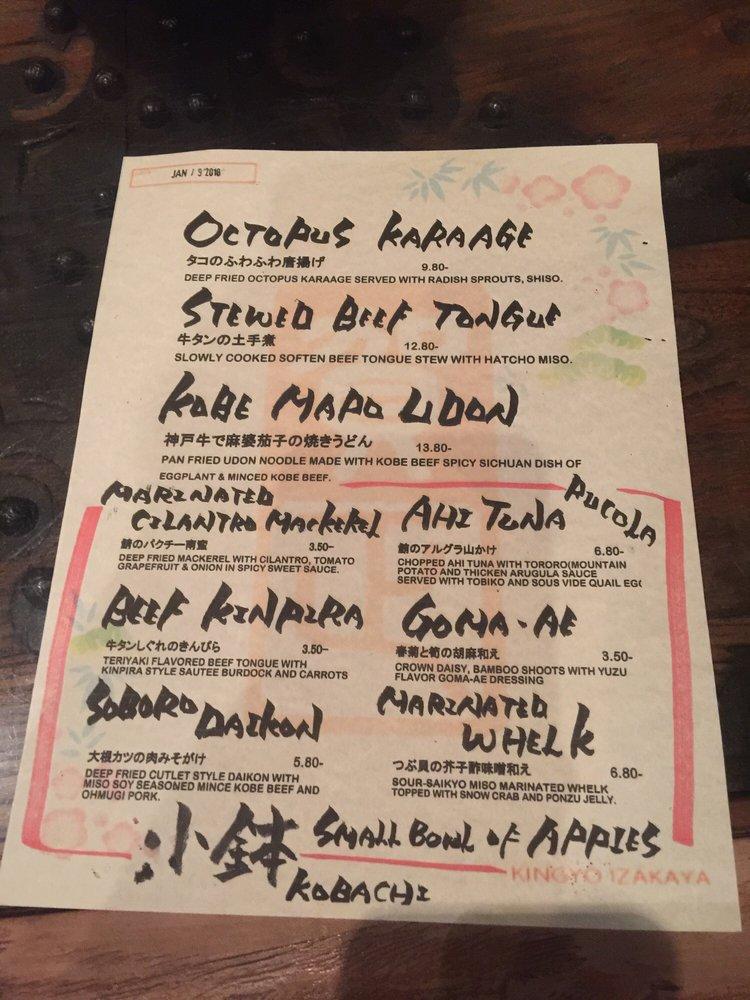 JAN 13 2018
OCTOPUS KARAAGE
タコのふわふわ唐揚げ 9.80-
DEEP FRIED OCTOPUS KARAAGE SERVED WITH RADISH SPROUTS, SHISO.
STEWED BEEF TONGUE
牛タンの土手煮 12.80-
SLOWLY COOKED SOFTEN BEEF TONGUE STEW WITH HATCHO MISO.
KOBE MAPO UDON
神戸牛で麻婆茄子の焼きうどん 13.80-
PAN FRIED UDON NOODLE MADE WITH KOBE BEEF SPICY SICHUAN DISH OF
EGGPLANT & MINCED KOBE BEEF.
MARINATED
CILANTRO MACKEREL
鯖のパクチー南蛮 3.50-
DEEP FRIED MACKEREL WITH CILANTRO, TOMATO
GRAPEFRUIT & ONION IN SPICY SWEET SAUCE.
AHI TUNA RUCOLA
鮪のアルグラ山かけ 6.80-
CHOPPED AHI TUNA WITH TORORO(MOUNTAIN
POTATO AND THICKEN ARUGULA SAUCE
SERVED WITH TOBIKO AND SOUS VIDE QUAIL EGG
BEEF KINPIRA
牛タンしぐれのきんぴら 3.50-
TERIYAKI FLAVORED BEEF TONGUE WITH
KINPIRA STYLE SAUTEE BURDOCK AND CARROTS
GOMA-AE
春菊と筍の胡麻和え 3.50-
CROWN DAISY, BAMBOO SHOOTS WITH YUZU
FLAVOR GOMA-AE DRESSING
SOBORO DAIKON
大根カツの肉みそがけ 5.80-
DEEP FRIED CUTLET STYLE DAIKON WITH
MISO SOY SEASONED MINCE KOBE BEEF AND
OHMUGI PORK.
MARINATED
WHELK
つぶ貝の芥子酢味噌和え 6.80-
SOUR-SAIKYO MISO MARINATED WHELK
TOPPED WITH SNOW CRAB AND PONZU JELLY.
小鉢 SMALL BOWL OF APPIES
KOBACHI
KINGYO IZAKAYA